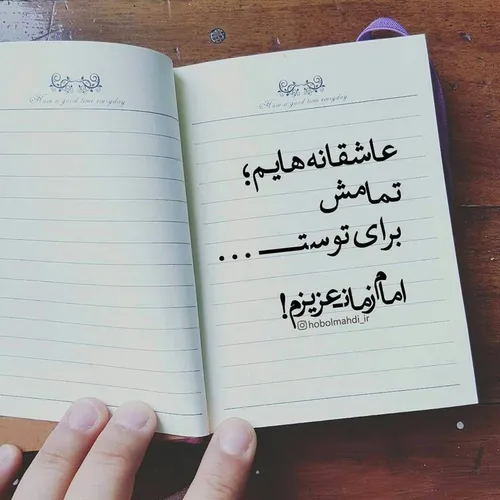 Have a good time everyday
Have a good time everyday
عاشقانه‌هایم؛
تمامش
برای توست ...
امام زمان عزیزم!
hobolmahdi_ir